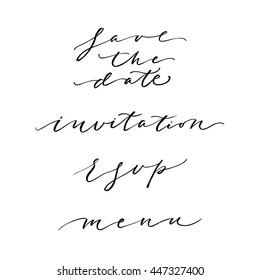 save
the
date
invitation
rsvp
menu
www.shutterstock.com · 447327400